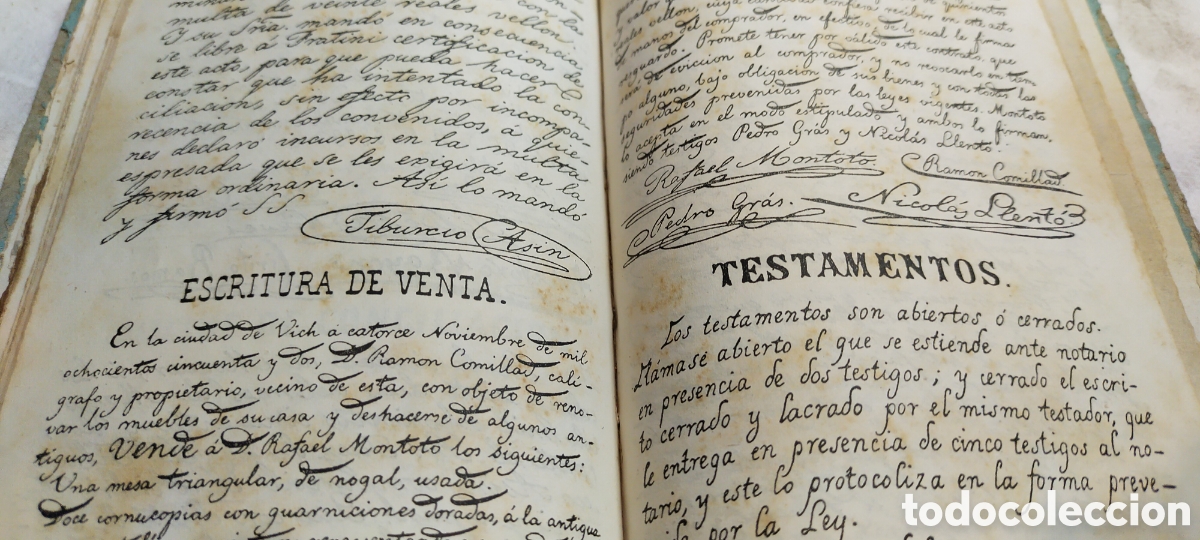 multa de veinte reales vellon.
Y su Sría. mandó en consecuencia
se libre á Fratini certificacion de
este acto, para que pueda hacer
constar que ha intentado la con-
ciliacion, sin efecto por incompa
recencia de los convenidos, á quie-
nes declaró incursos en la multa
espresada que se les exigirá en la
forma ordinaria. Así lo mandó
y firmó SS
Tiburcio Asin
ESCRITURA DE VENTA.
En la ciudad de Vich á catorce Noviembre de mil
ochocientos cincuenta y dos, D. Ramon Comillad, calí-
grafo y propietario, vecino de esta, con objeto de reno-
var los muebles de su casa y deshacerse de algunos an-
tiguos, Vende á D. Rafael Montoto los siguientes:
Una mesa triangular, de nogal, usada.
Doce cornucopias con guarniciones doradas, á la antigua
valor y
reales vellon, cuya cantidad confiesa recibir en este acto
de manos del comprador, en efectivo, de la cual le firma
resguardo. Promete tener por válido este contrato, que
será de eviccion al comprador, y no revocarlo en tiem
po alguno, bajo obligacion de sus bienes y con todas las
seguridades prevenidas por las leyes vigentes. Montoto
lo acepta en el modo estipulado y ambos lo firman,
siendo testigos Pedro Grás y Nicolás Llentó.
Rafael Montoto Ramon Comillad
Pedro Grás. Nicolás Llentó
TESTAMENTOS.
Los testamentos son abiertos ó cerrados.
Llámase abierto el que se estiende ante notario
en presencia de dos testigos; y cerrado el escri-
to cerrado y lacrado por el mismo testador, que
le entrega en presencia de cinco testigos al no-
tario, y este lo protocoliza en la forma preve-
nida por la Ley.
todocoleccion